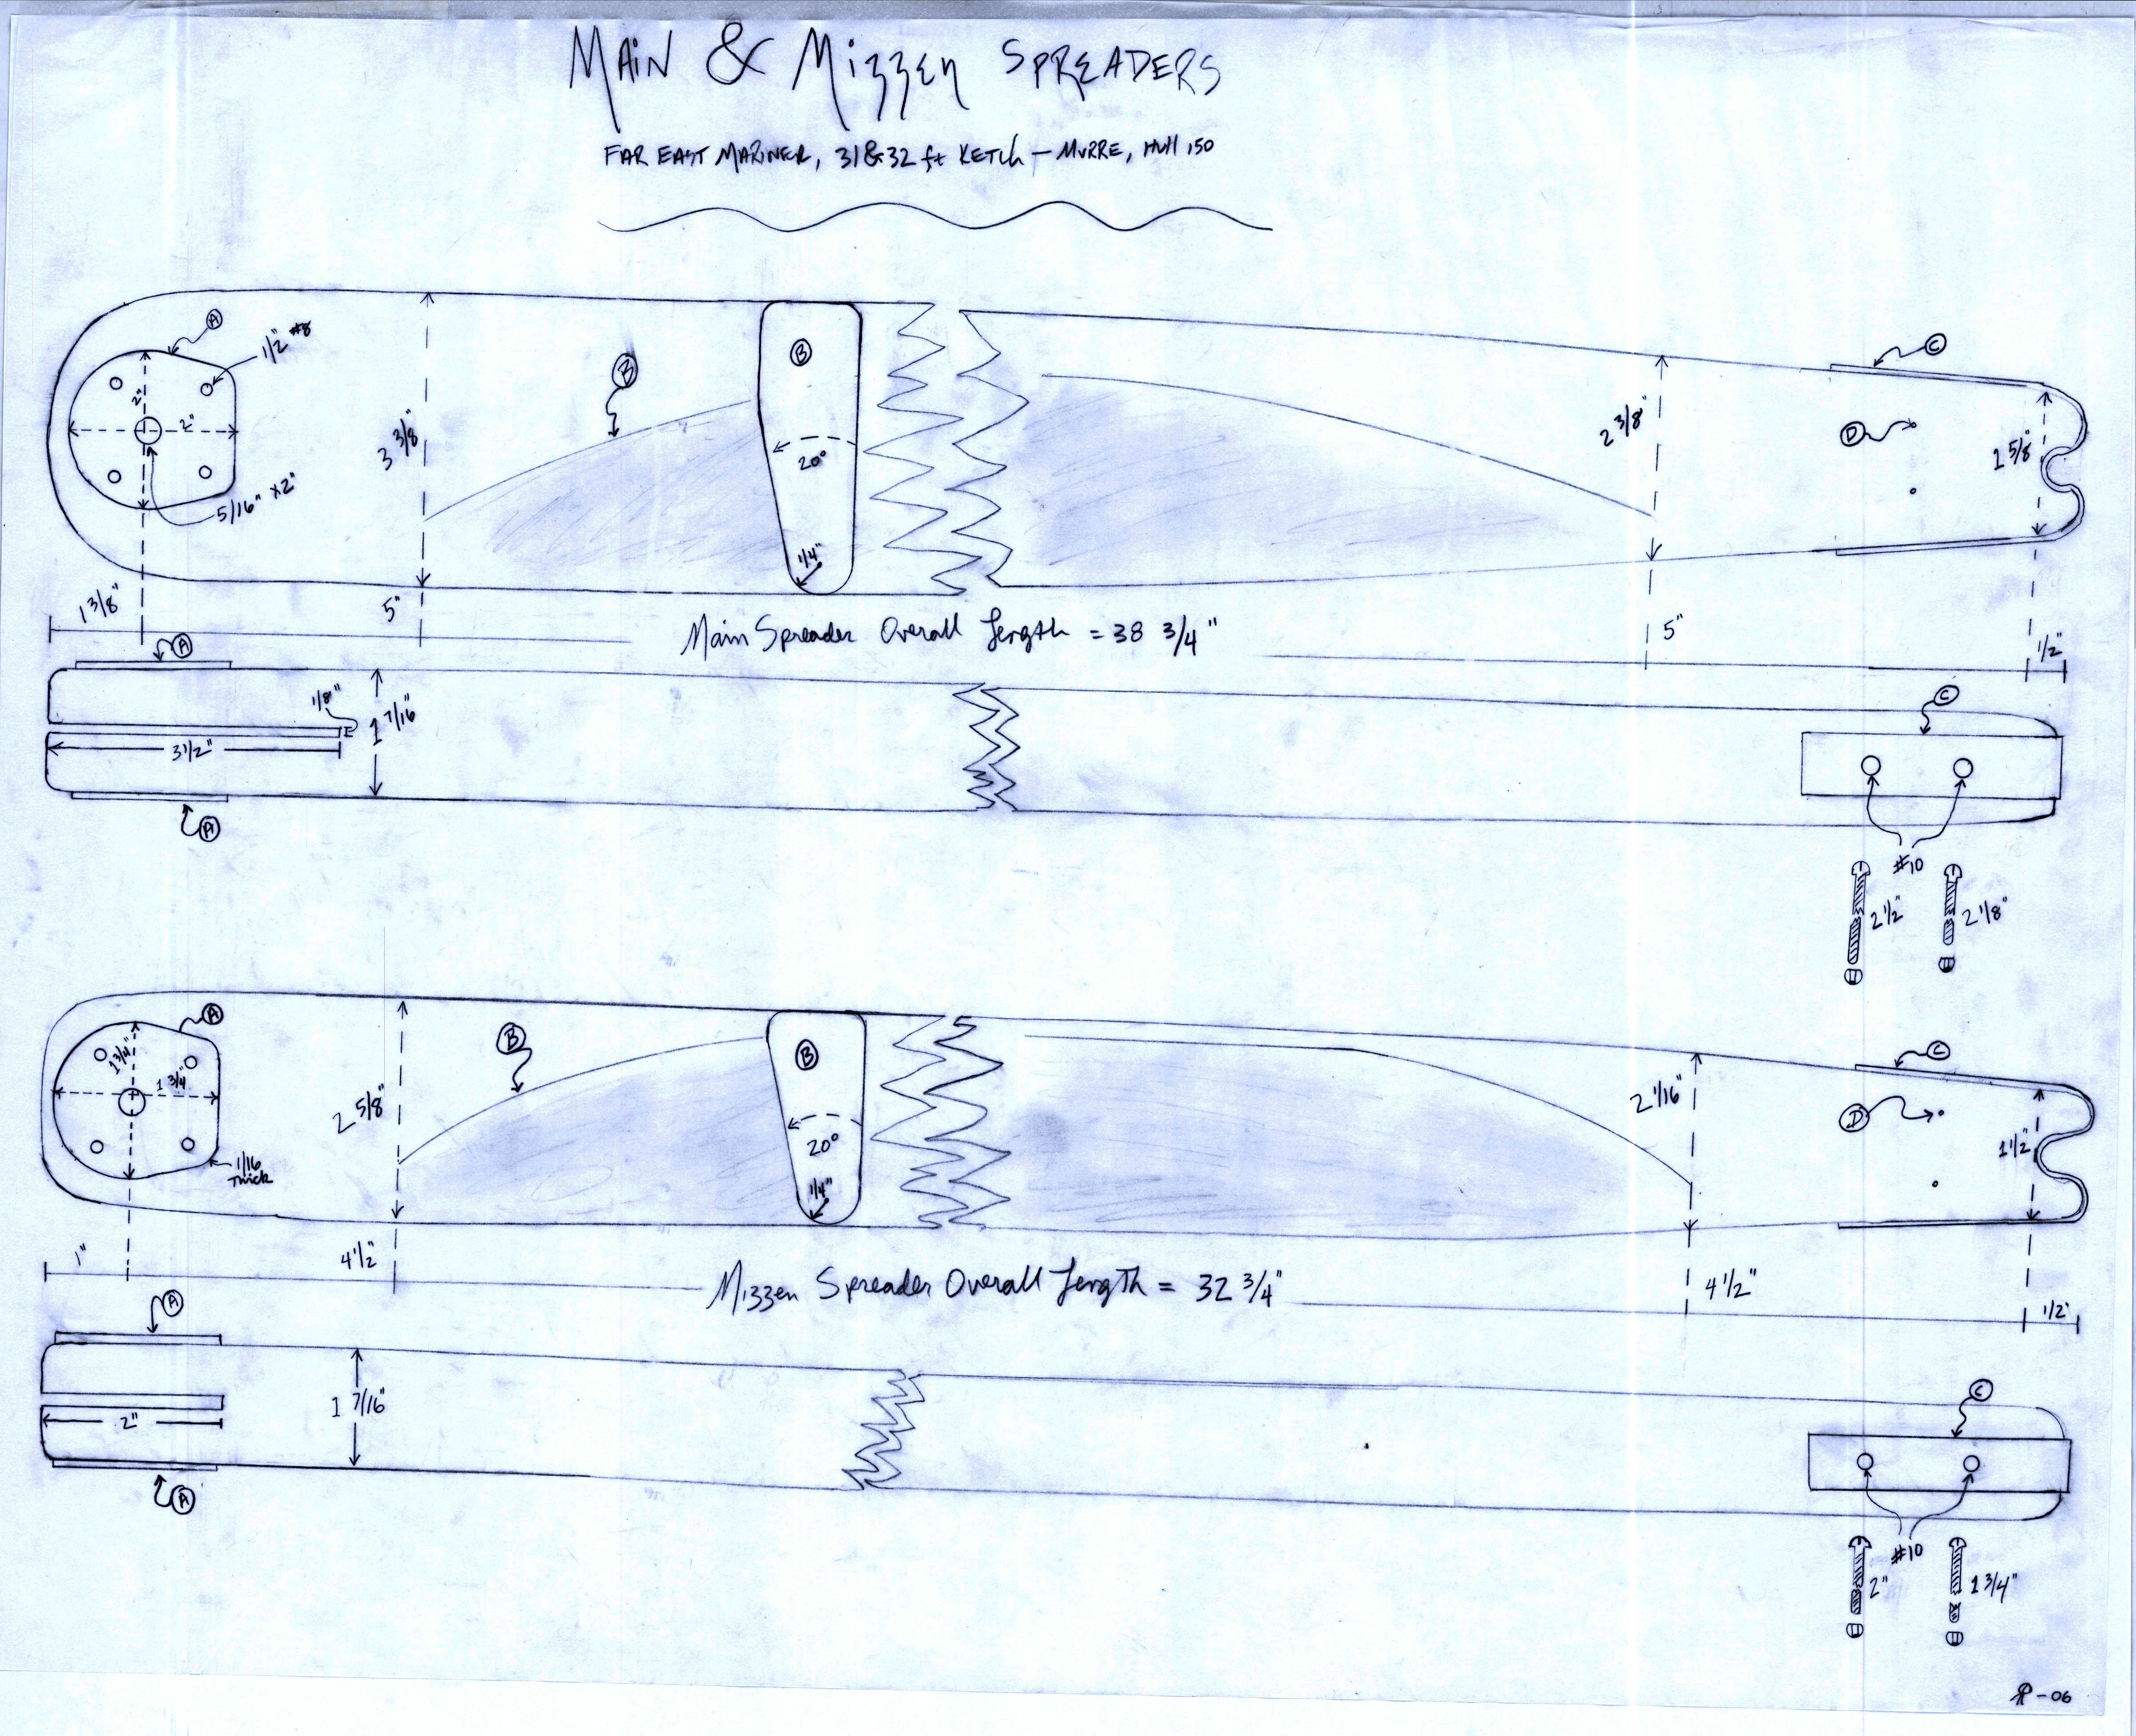 MAIN & MizzEN SPREADERS
FAR EAST MARINER, 31&32 ft KETCh – MURRE, Hull 150
A
1/2" #8
2"
2"
5/16" x2"
3 3/8"
B
B
20°
1/4"
2 3/8"
C
D
1 5/8"
1 3/8"
5"
Main Spreader Overall Length = 38 3/4"
5"
1/2"
A
1/8"
3 1/2"
1 7/16"
A
C
#10
2 1/2"
2 1/8"
A
1 3/4"
1 3/4"
1/16
Thick
2 5/8"
B
B
20°
1/4"
2 1/16"
C
D
1 1/2"
1"
4 1/2"
Mizzen Spreader Overall Length = 32 3/4"
4 1/2"
1/2"
A
2"
1 7/16"
A
C
#10
2"
1 3/4"
-06